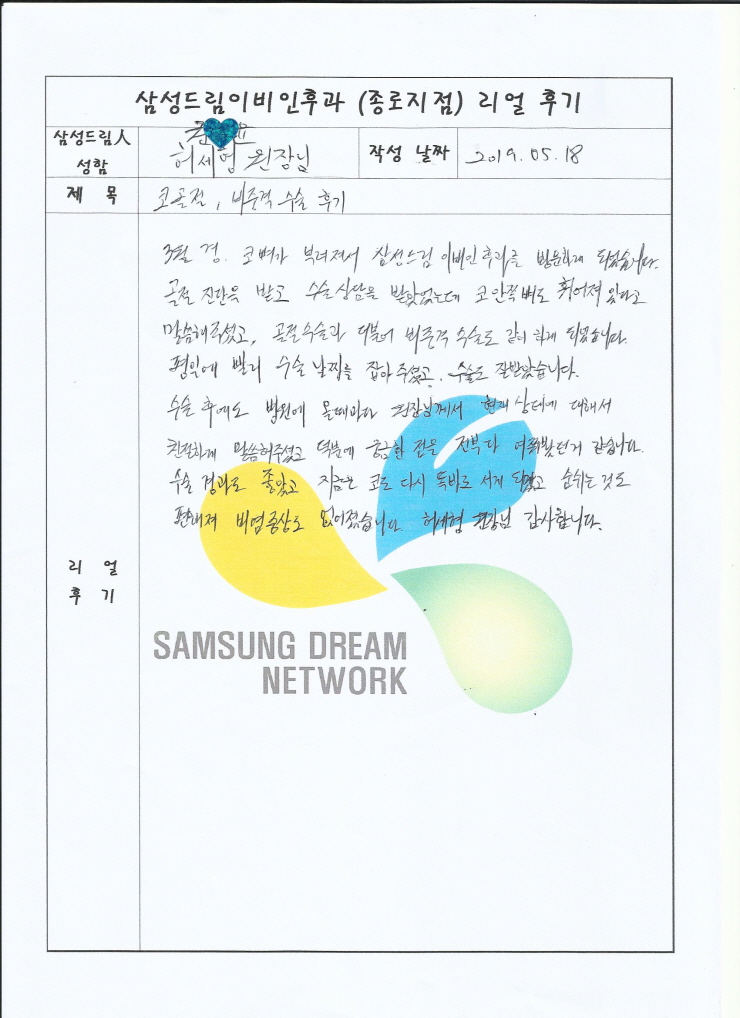 삼성드림이비인후과 (종로지점) 리얼 후기
삼성드림人 성함
허세형 원장님
작성 날짜
2019. 05. 18
제 목
코골절, 비중격 수술 후기
3월 경. 코뼈가 부러져서 삼성드림 이비인후과를 방문하게 되었습니다.
골절 진단을 받고 수술상담을 받았었는데 코안쪽뼈도 휘어져 있다고
말씀해주셨고, 골절수술과 더불어 비중격 수술도 같이 하게 되었습니다.
평일에 빨리 수술 날짜를 잡아 주셨고, 수술도 잘받았습니다.
수술 후에도 병원에 올때마다 원장님께서 현재 상태에 대해서
친절하게 말씀해주셨고 덕분에 궁금한 점을 전부다 여쭤봤던거 같습니다.
수술 경과도 좋았고 지금은 코도 다시 똑바로 서게 되었고 숨쉬는 것도
편해져 비염증상도 없어졌습니다 허세형 원장님 감사합니다.
리 얼
후 기
SAMSUNG DREAM
NETWORK